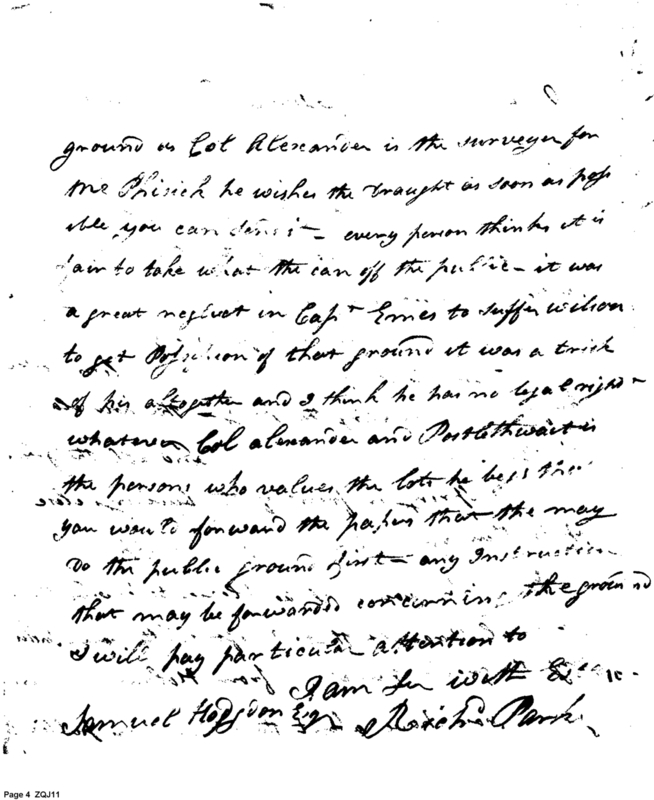 ground as Col Alexander is the surveyer for
Mr Phisick he wishes the Draught as soon as poss
ible you can send it – every person thinks it is
fair to take what the can off the public – it was
a great neglect in Capt Emes to suffer wilson
to get Possession of that ground it was a trick
of his altogether and I think he has no legal right
whatever Col alexander and Postlethwait is
the persons who values the lots he begs that
you would forward the papers that the may
Do the public ground first – any Instruction
that may be forwarded concerning the ground
I will pay particular attention to
I am Sir with
Samuel Hodgdon Esqr Richd Parker
Page 4 ZQJ11